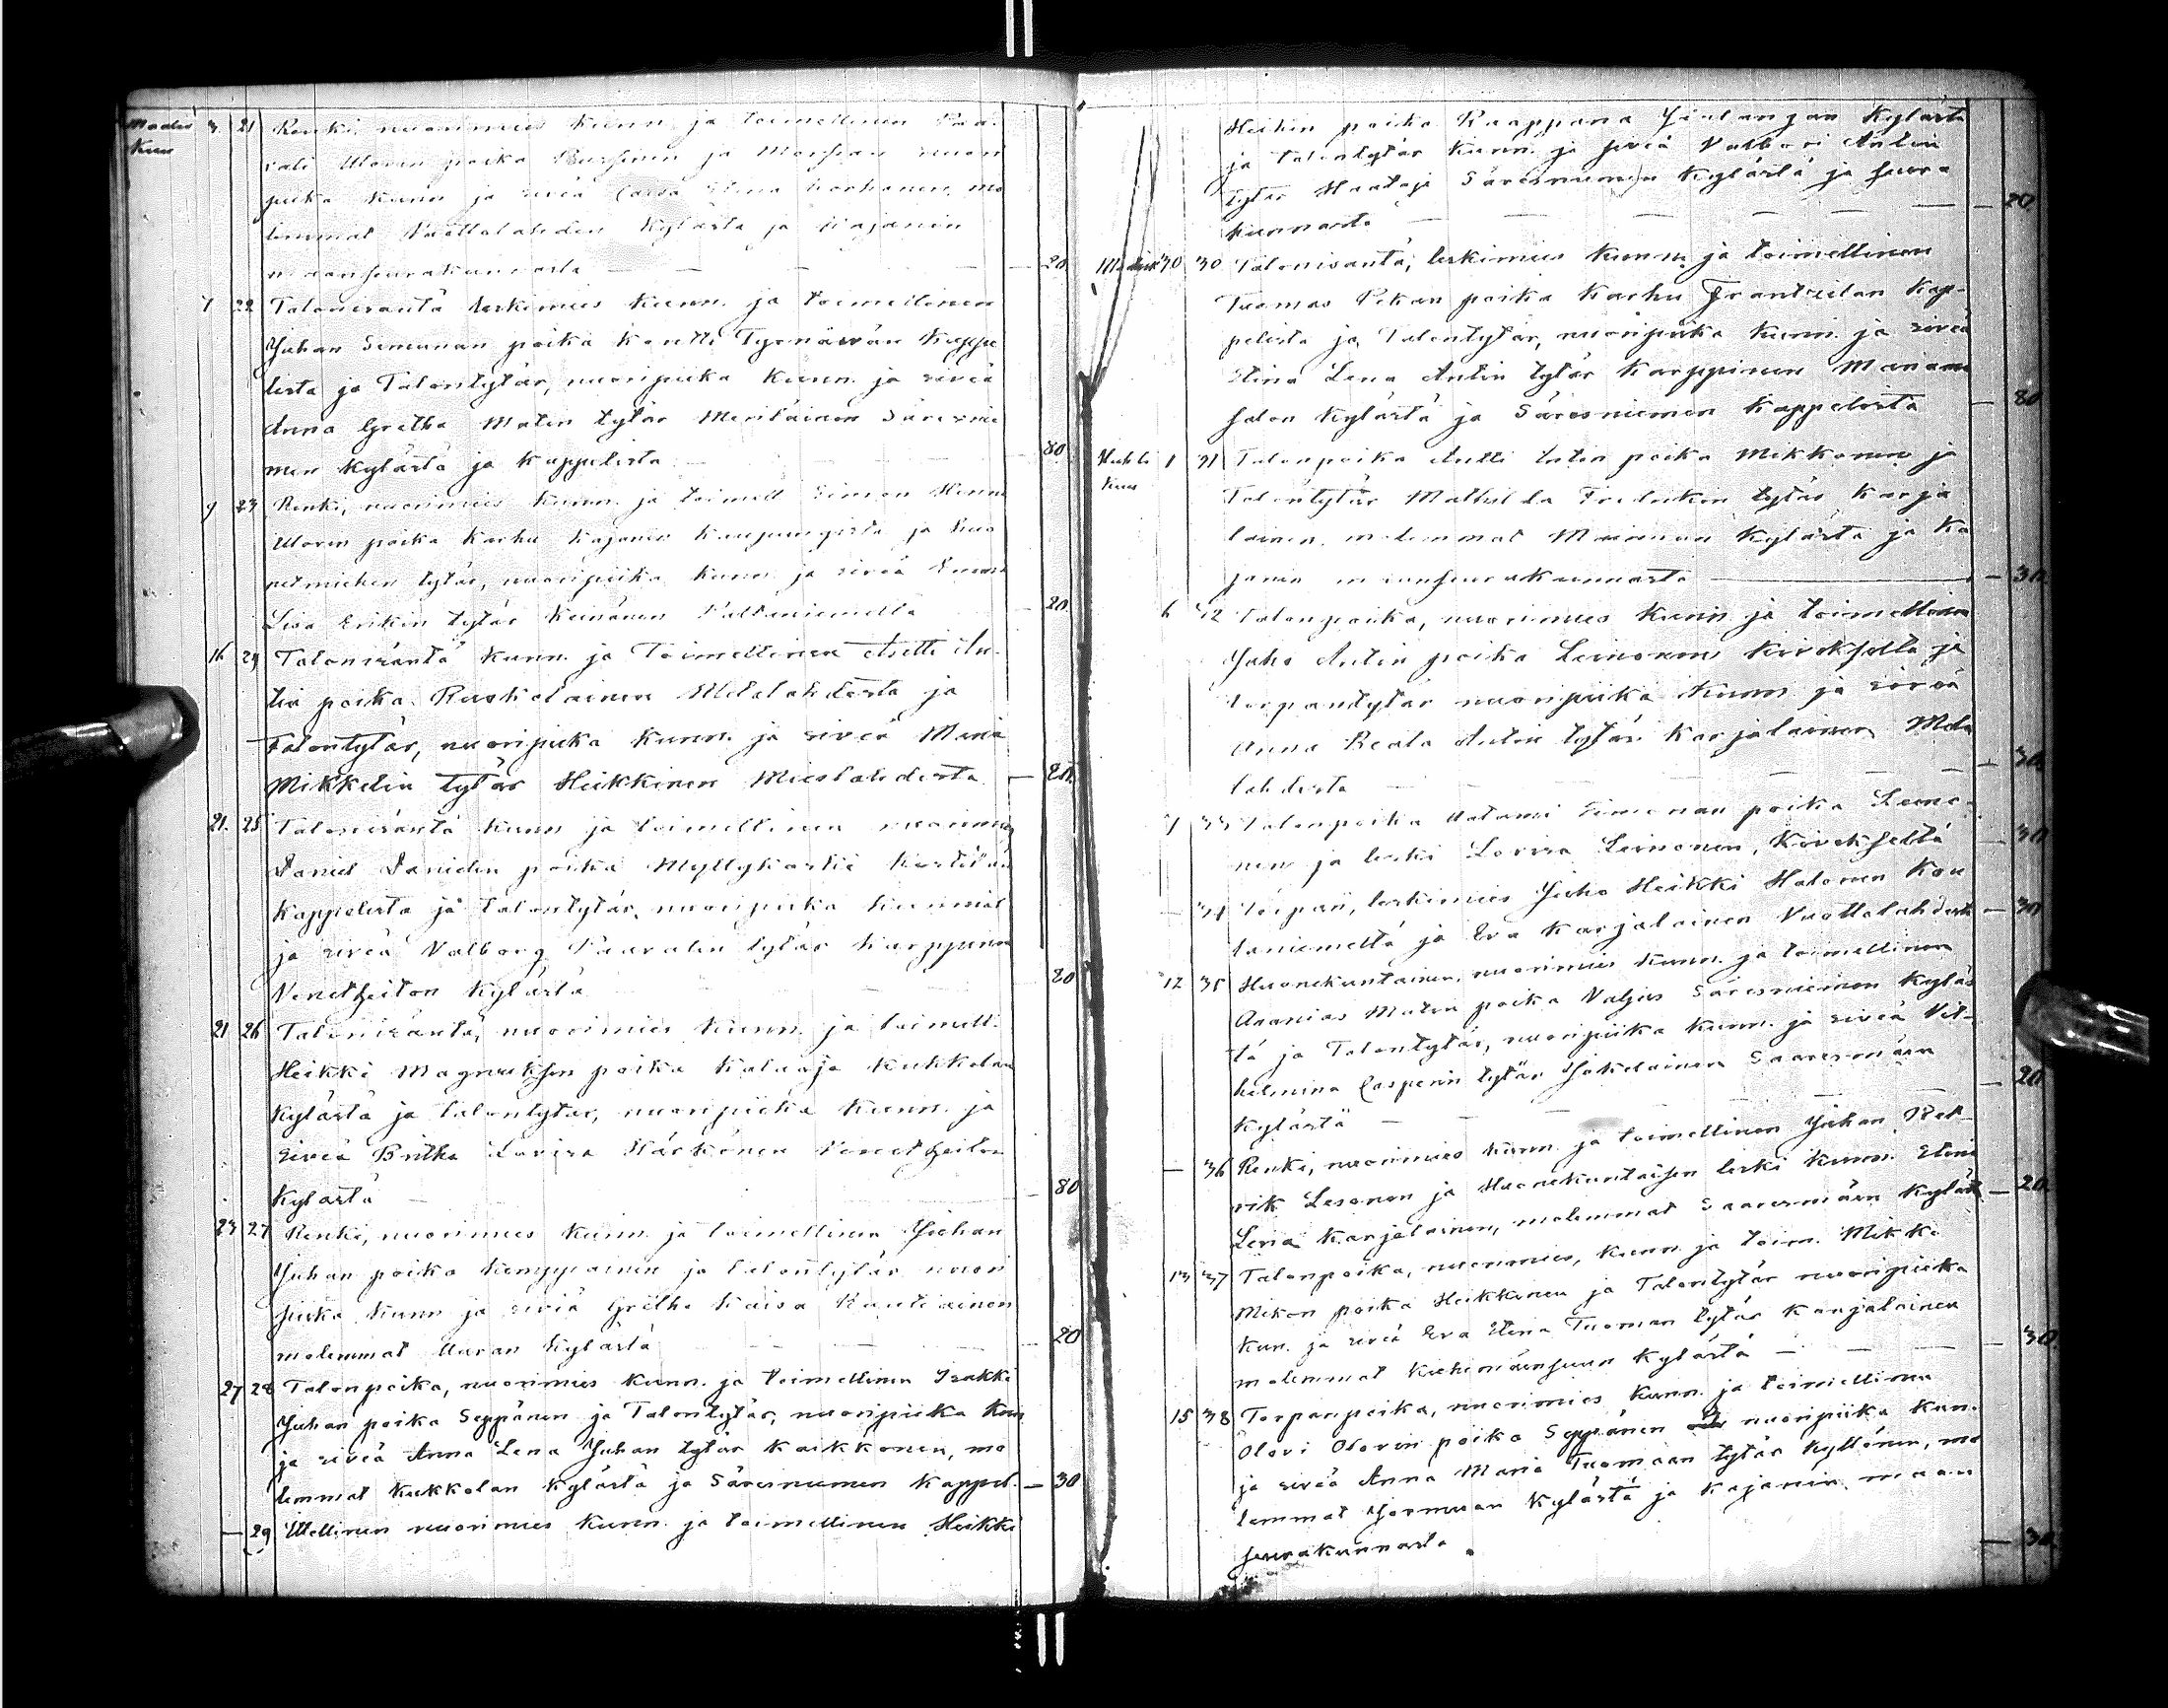 Maalis 3. 21 Renki, nuorimies Kunn. ja toimellinen Paa-
Kuu vali Olovin poika ja Morsian nuori
piika Kunn. ja siviä Caisa Stina Korhonen, mo
lemmat Vuottolahden Kylästä ja Kajanin
maanseurakunnasta — — — — 20.
7 22 Talonisäntä leskimies Kunn. ja toimellinen
Juhan Simunan poika Kontti Tyrnäwän Kappe
lista ja Talontytär, nuoripiika Kunn. ja siviä
Anna Gretha Matin tytär Meriläinen Säresnie
men Kylästä ja Kappelista — — — 80.
9 23 Renki, nuorimies Kunn. ja toimell. Simon Henn
Olovin poika Karhu Kajanin Kaupungista ja
tytär, nuoripiika Kunn. ja siviä Emma
Lisa Erikin tytär Keinänen Paltaniemeltä — 20.
16 24 Talonisäntä Kunn. ja Toimellinen Antti An-
tin poika Ruskolainen Melalahdesta ja
Talontytär, nuoripiika Kunn. ja siviä Maria
Mikkelin tytär Heikkinen Mieslahdesta — 20.
21. 25 Talonisäntä Kunn ja toimellinen nuorimies
Daniel Danielin poika Myllykoski Kestilän
Kappelista ja talontytär, nuoripiika Kunnial
ja siviä Valborg Paavalin tytär Karppinen
Venetheiton Kylästä — — — 80
21 26 Talonisäntä, nuorimies Kunn. ja toimell.
Heikki Magnuksen poika Kalaaja Kukkolan
Kylästä ja talontytär, nuoripiika Kunn. ja
siviä Britha Lovisa Härkönen Venetheiton
Kylästä — — 80
23 27 Renki, nuorimies Kunn. ja toimellinen Juhan
Juhan poika Kemppainen ja talontytär nuori
piika Kunn ja siviä Gretha Kaisa Rautiainen
molemmat Uuran Kylästä — — — 20
27 28 Talonpoika, nuorimies Kunn. ja toimellinen Isakki
Juhan poika Seppänen ja Talontytär, nuoripiika Kun
ja siviä Anna Lena Juhan tytär Kaikkonen, mo
lemmat Kukkolan Kylästä ja Säresniemen Kappel. — 30
— 29 Itellinen nuorimies Kunn. ja toimellinen Heikki
Heikin poika Kaappana Jylangon Kylästä
ja talontytär Kunn. ja siviä Valbori Antin
tytär Haataja Säresniemen Kylästä ja seura
kunnasta — — — — — 20
Maalisk 30 30 Talonisäntä, leskimies Kunn. ja toimellinen
Tuomas Pekan poika Karhu Frantsilan Kap-
pelista ja Talontytär, nuoripiika Kunn. ja siviä
Stina Lena Antin tytär Karppinen Manam
salon Kylästä ja Säresniemen Kappelista — 80
Huhti 1 31 Talonpoika Antti Antin poika Mikkonen ja
Kuu Talontytär Mathilda Fredrikin tytär Karja
lainen, molemmat Mainuan Kylästä ja Ka
janin maanseurakunnasta — 30.
6 32 Talonpoika, nuorimies Kunn ja toimellinen
Juho Antin poika Leinonen Kiveksellä ja
torpantytär nuoripiika Kunn. ja siviä
Anna Reata Antin tytär Karjalainen Mela
lahdesta — — — — — 30
7 33 Talonpoika Aatami Simonan poika Leino-
nen ja leski Lovisa Leinonen, Kivekseltä — 30
— 34 Torpari, leskimies Juho Heikki Halonen Kou
taniemeltä ja Eva Karjalainen Vuottolahdesta — 30
12 35 Huonekuntainen, nuorimies Kunn. ja toimellinen
Ananias Matin poika Valjus Säresniemen Kyläs
tä ja Talontytär, nuoripiika Kunn. ja siviä Vil-
helmina Casperin tytär Jokelainen Saaresmäen
Kylästä — — — — — 20
— 36 Renki, nuorimies Kunn. ja toimellinen Juhan Fred
rik Lesonen ja Huonekuntaisen leski Kunn. Stina
Lena Karjalainen, molemmat Saaresmäen Kyläst — 20.
13 37 Talonpoika, nuorimies, Kunn. ja toim. Mikki
Mikon poika Heikkinen ja Talontytär nuoripiika
Kun. ja siviä Eva Stina Tuoman tytär Karjalainen
molemmat Kiehimänsuun Kylästä — — — 30.
15 38 Torpanpoika, nuorimies Kunn. ja toimellinen
Olovi Olovin poika Seppänen nuoripiika Kun.
ja siviä Anna Maria Tuomaan tytär Kyllönen, mo
lemmat Jormuan Kylästä ja Kajanin maan
seurakunnasta. — 30.